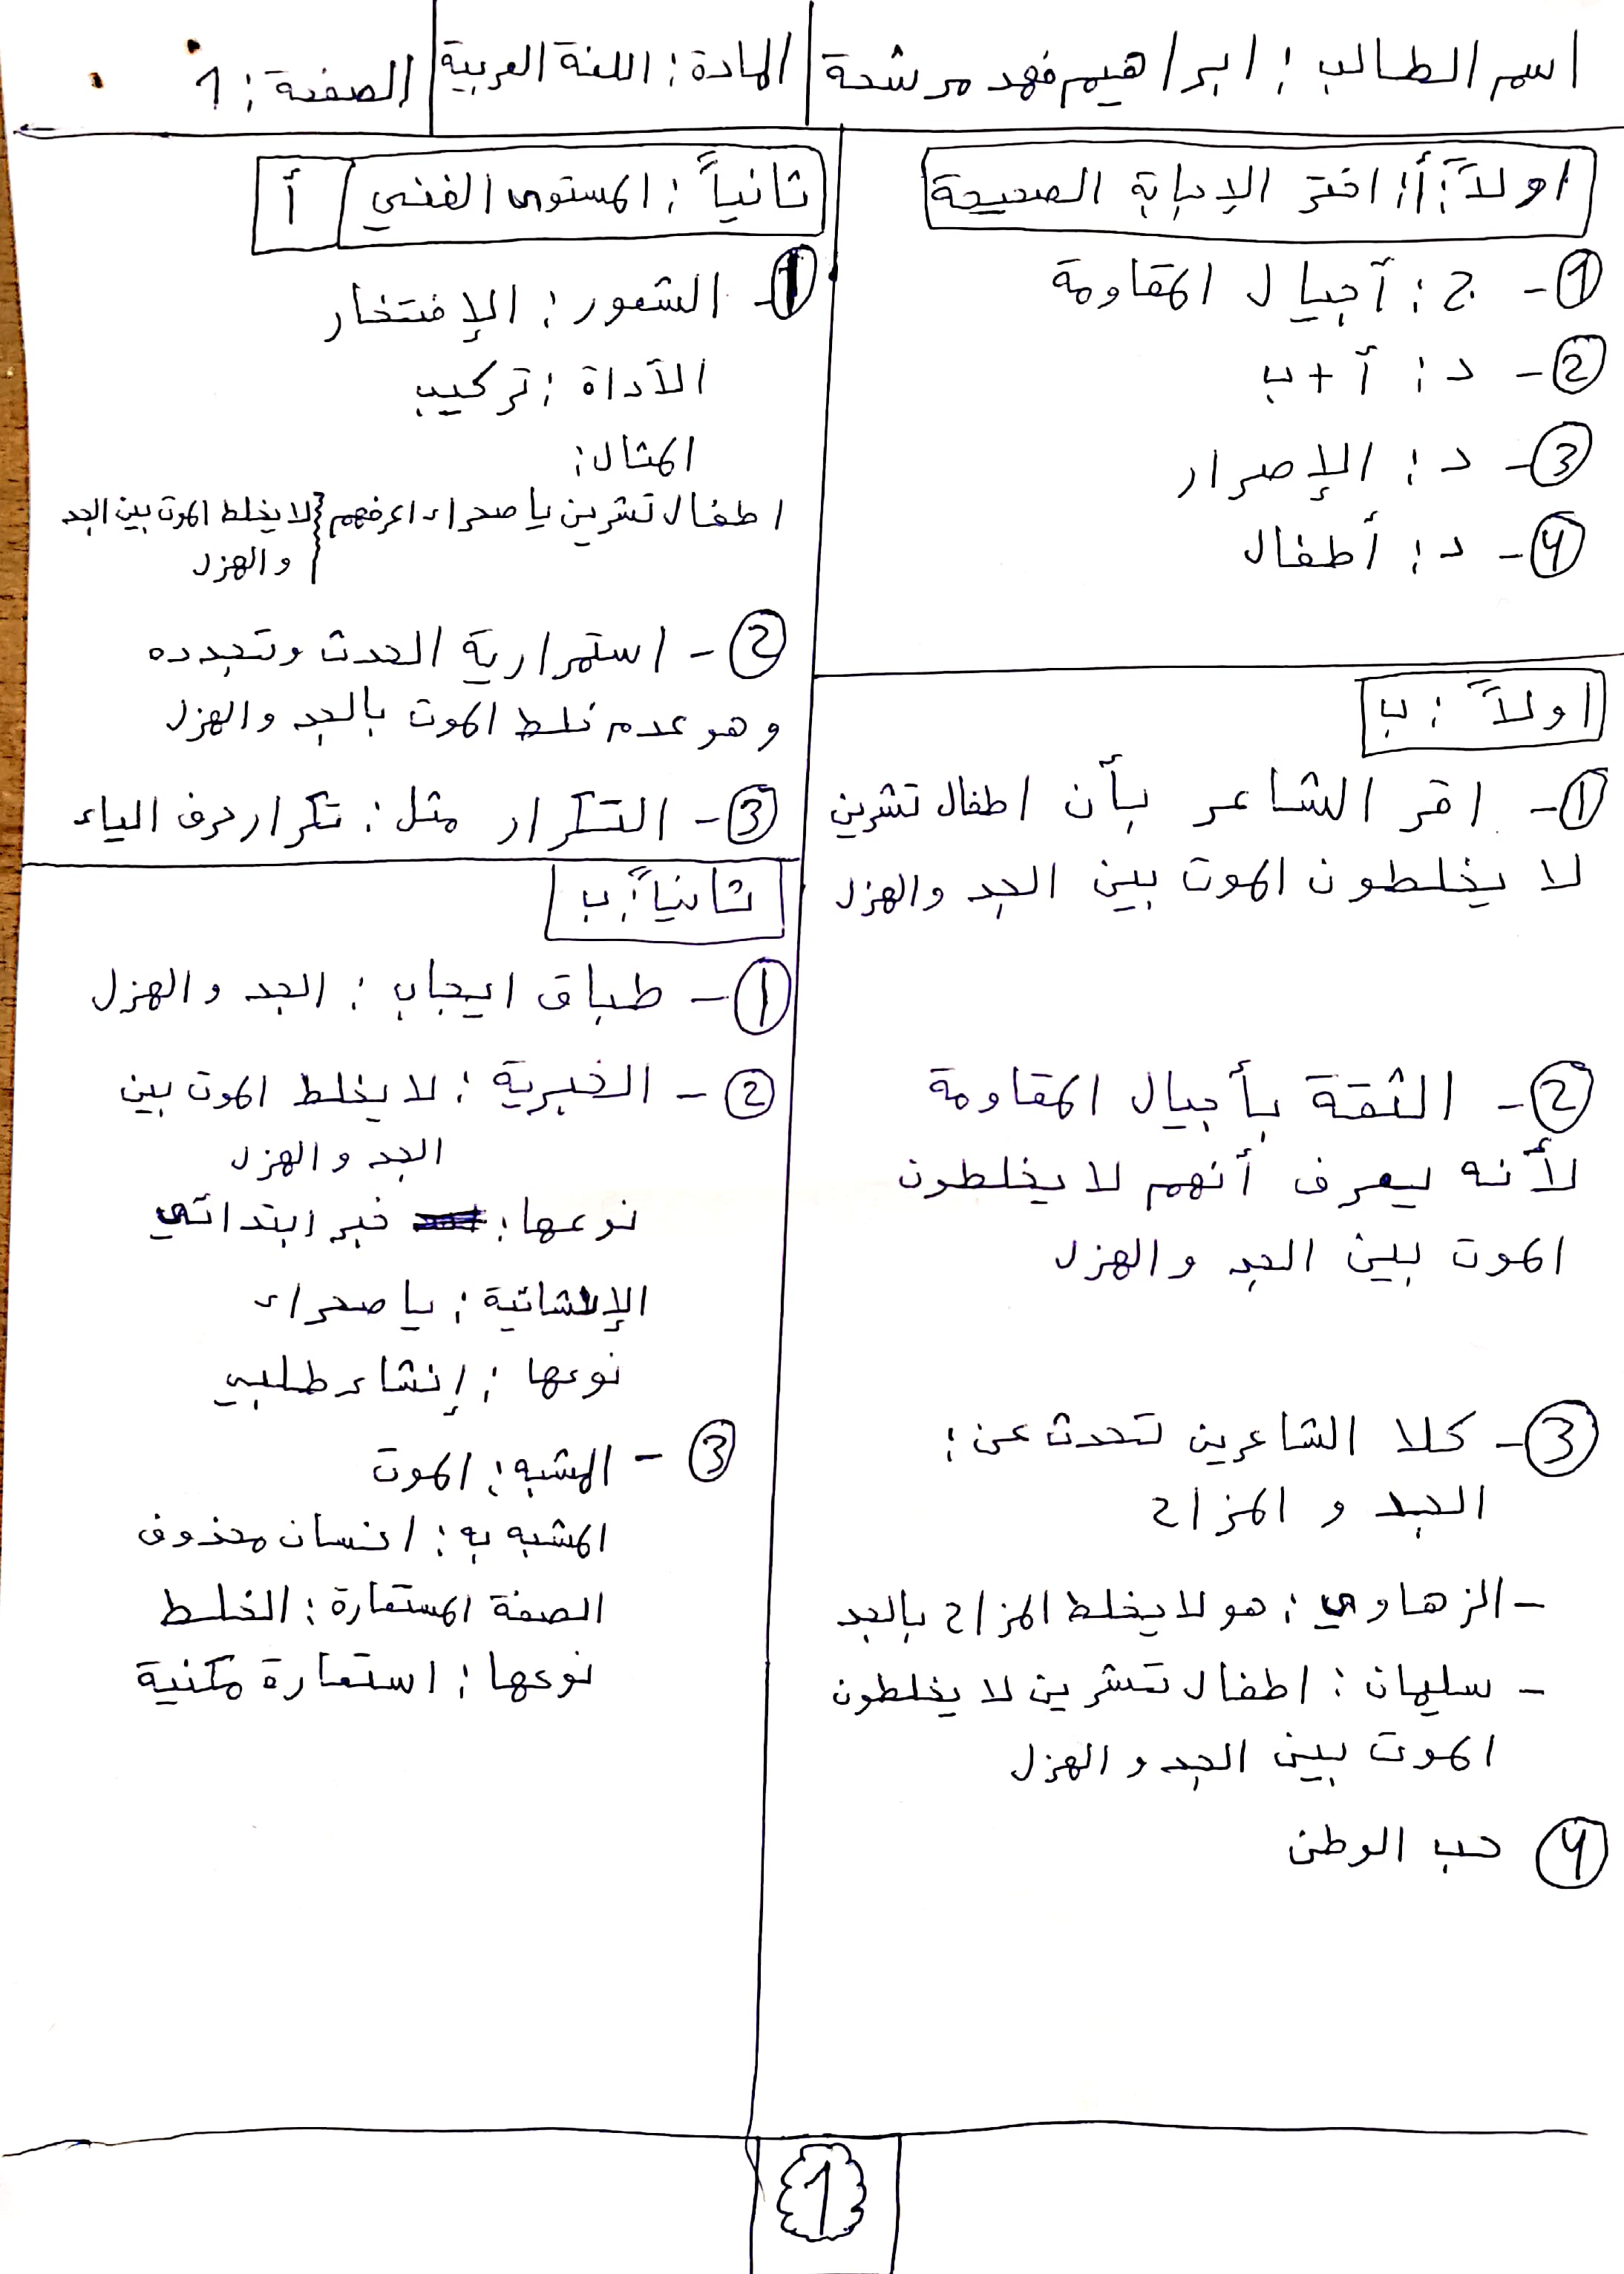 اسم الطالب : ابراهيم فهد مرشحة
المادة : اللغة العربية
الصفحة : 1
اولاً : أ : اختر الإجابة الصحيحة
1- ج : أجيال المقاومة
2- د : أ + ب
3- د : الإصرار
4- د : أطفال
اولاً : ب
1- اقر الشاعر بأن اطفال تشرين
لا يخلطون الموت بين الجد والهزل
2- الثقة بأجيال المقاومة
لأنه يعرف أنهم لا يخلطون
الموت بين الجد والهزل
3- كلا الشاعرين تحدث عن :
الجد و المزاح
- الزهاوي : هو لا يخلط المزاح بالجد
- سليمان : اطفال تشرين لا يخلطون
الموت بين الجد والهزل
4 حب الوطن
ثانياً : المستوى الفني
أ
1- الشعور : الإفتخار
الأداة : تركيب
المثال :
اطفال تشرين يا صحراء اعرفهم } لا يخلط الموت بين الجد
والهزل
2- استمرارية الحدث وتجدده
وهو عدم خلط الموت بالجد والهزل
3- التكرار مثل : تكرار حرف الياء
ثانياً : ب
1- طباق ايجاب : الجد والهزل
2- الخبرية : لا يخلط الموت بين
الجد والهزل
نوعها : خبر ابتدائي
الإنشائية : يا صحراء
نوعها : إنشاء طلبي
3- المشبه : الموت
المشبه به : انسان محذوف
الصفة المستعارة : الخلط
نوعها : استعارة مكنية
1